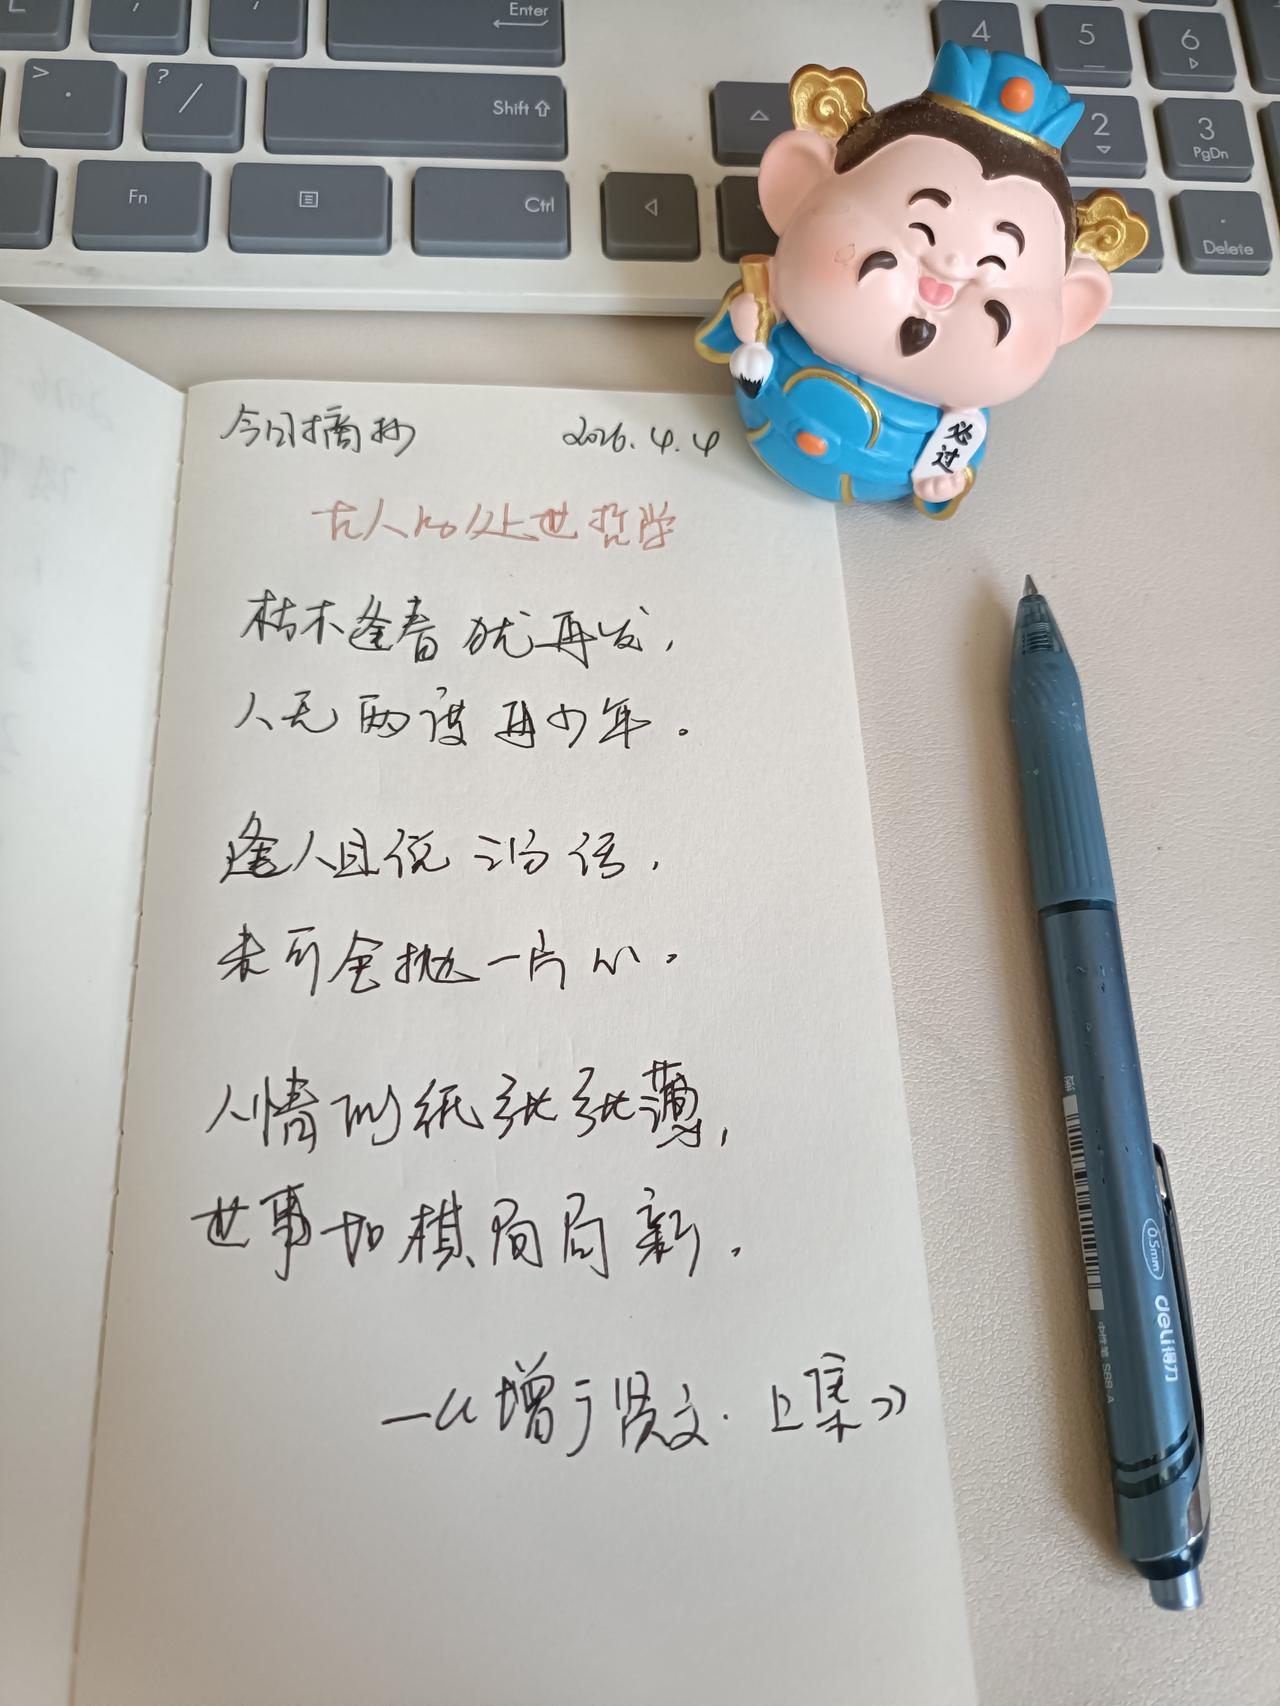 Enter
Shift
Fn
Ctrl
4
5
6
2
3
PgDn
Delete
必过
今日摘抄 2026.4.4
古人的处世哲学
枯木逢春犹再发，
人无两度再少年。
逢人且说三分话，
未可全抛一片心。
人情似纸张张薄，
世事如棋局局新。
—《增广贤文·上集》
0.5mm
deli得力
中性笔 S88-A